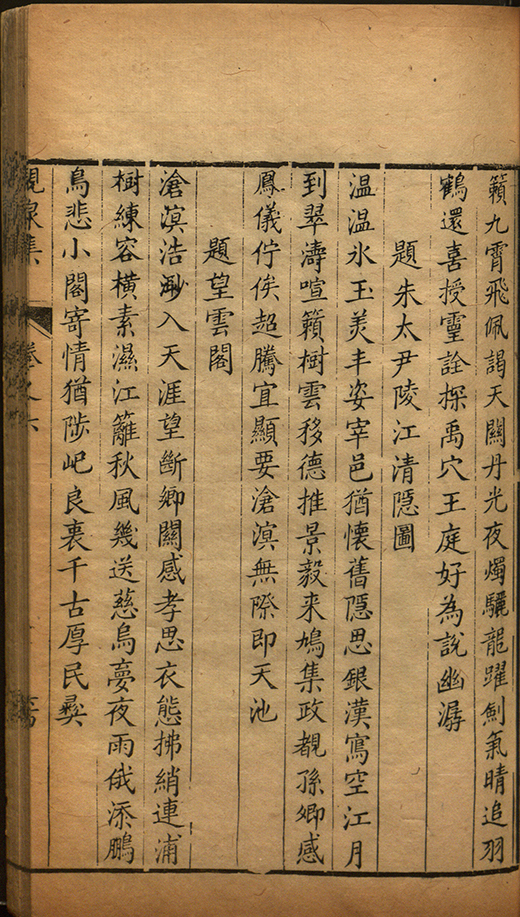 籟九霄飛佩謁天關丹光夜燭驪龍躍劍氣晴追羽
鶴還喜授靈詮探禹穴王庭好為說幽潺
題朱太尹陵江清隱圖
温温氷玉羙丰姿宰邑猶懷舊隱思銀漢寫空江月
到翠濤喧籟樹雲移德推景毅来鳩集政覩孫卿感
鳳儀佇俟超騰宜顯要滄溟無際即天池
題望雲閣
滄溟浩渺入天涯望斷鄉關感孝思衣態拂綃連浦
樹練容橫素濕江籬秋風幾送慈烏夣夜雨俄添鵬
鳥悲小閣寄情猶陟屺良裏千古厚民彝
泉集
卷之六